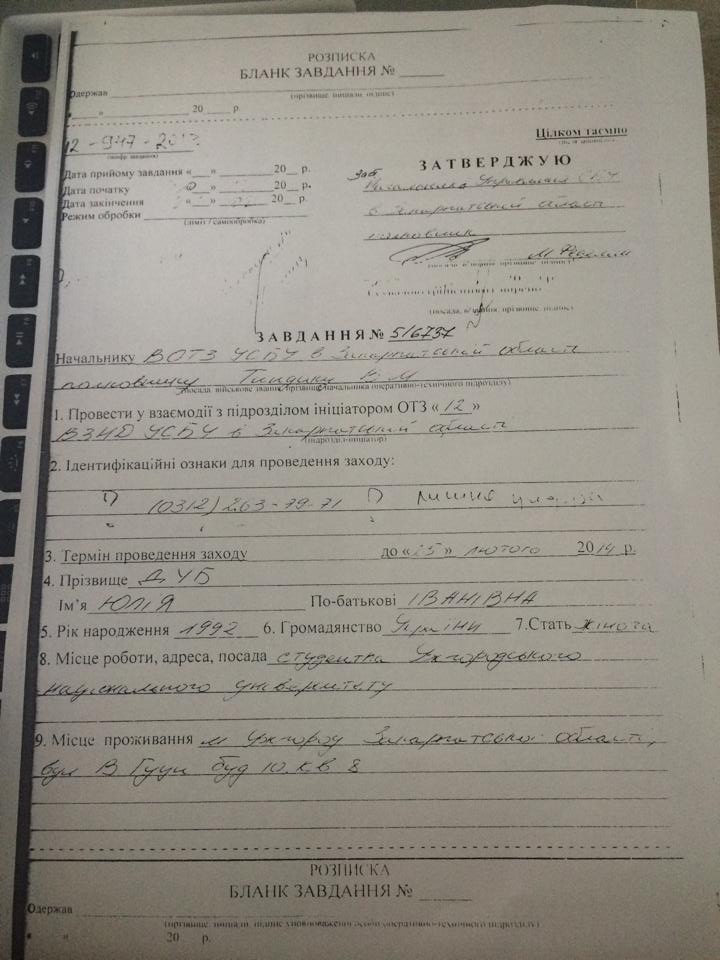 РОЗПИСКА
БЛАНК ЗАВДАННЯ №
Одержав
(прізвище, ініціали, підпис)
« » 20 р.
Цілком таємно
12 - 947 - 201
(шифр завдання)
ЗАТВЕРДЖУЮ
Дата прийому завдання « » 20 р.
Дата початку 20 р.
Дата закінчення « » 20 р.
Режим обробки
(ліміт / самообробка)
Заст.
Начальника Управління СБУ
в Закарпатській області
полковник
(посада, прізвище, підпис)
ЗАВДАННЯ № 516737
Начальнику ВОТЗ УСБУ в Закарпатській області
полковнику В М
(посада, військове звання, прізвище начальника оперативно-технічного підрозділу)
1. Провести у взаємодії з підрозділом ініціатором ОТЗ « 12 »
ВЗНД УСБУ в Закарпатській області
(підрозділ-ініціатор)
2. Ідентифікаційні ознаки для проведення заходу:
1) (0312) 263-79-71
3. Термін проведення заходу до « 25 » лютого 2014 р.
4. Прізвище ДУБ
Ім’я ЮЛІЯ По-батькові ІВАНІВНА
5. Рік народження 1992 6. Громадянство України 7.Стать жіноча
8. Місце роботи, адреса, посада студентка Ужгородського
національного університету
9. Місце проживання м Ужгород Закарпатської області,
вул В Гуци буд 10 кв 8
РОЗПИСКА
БЛАНК ЗАВДАННЯ №
Одержав
(прізвище, ініціали, підпис уповноваженої особи оперативно-технічного підрозділу)
« » 20 р.